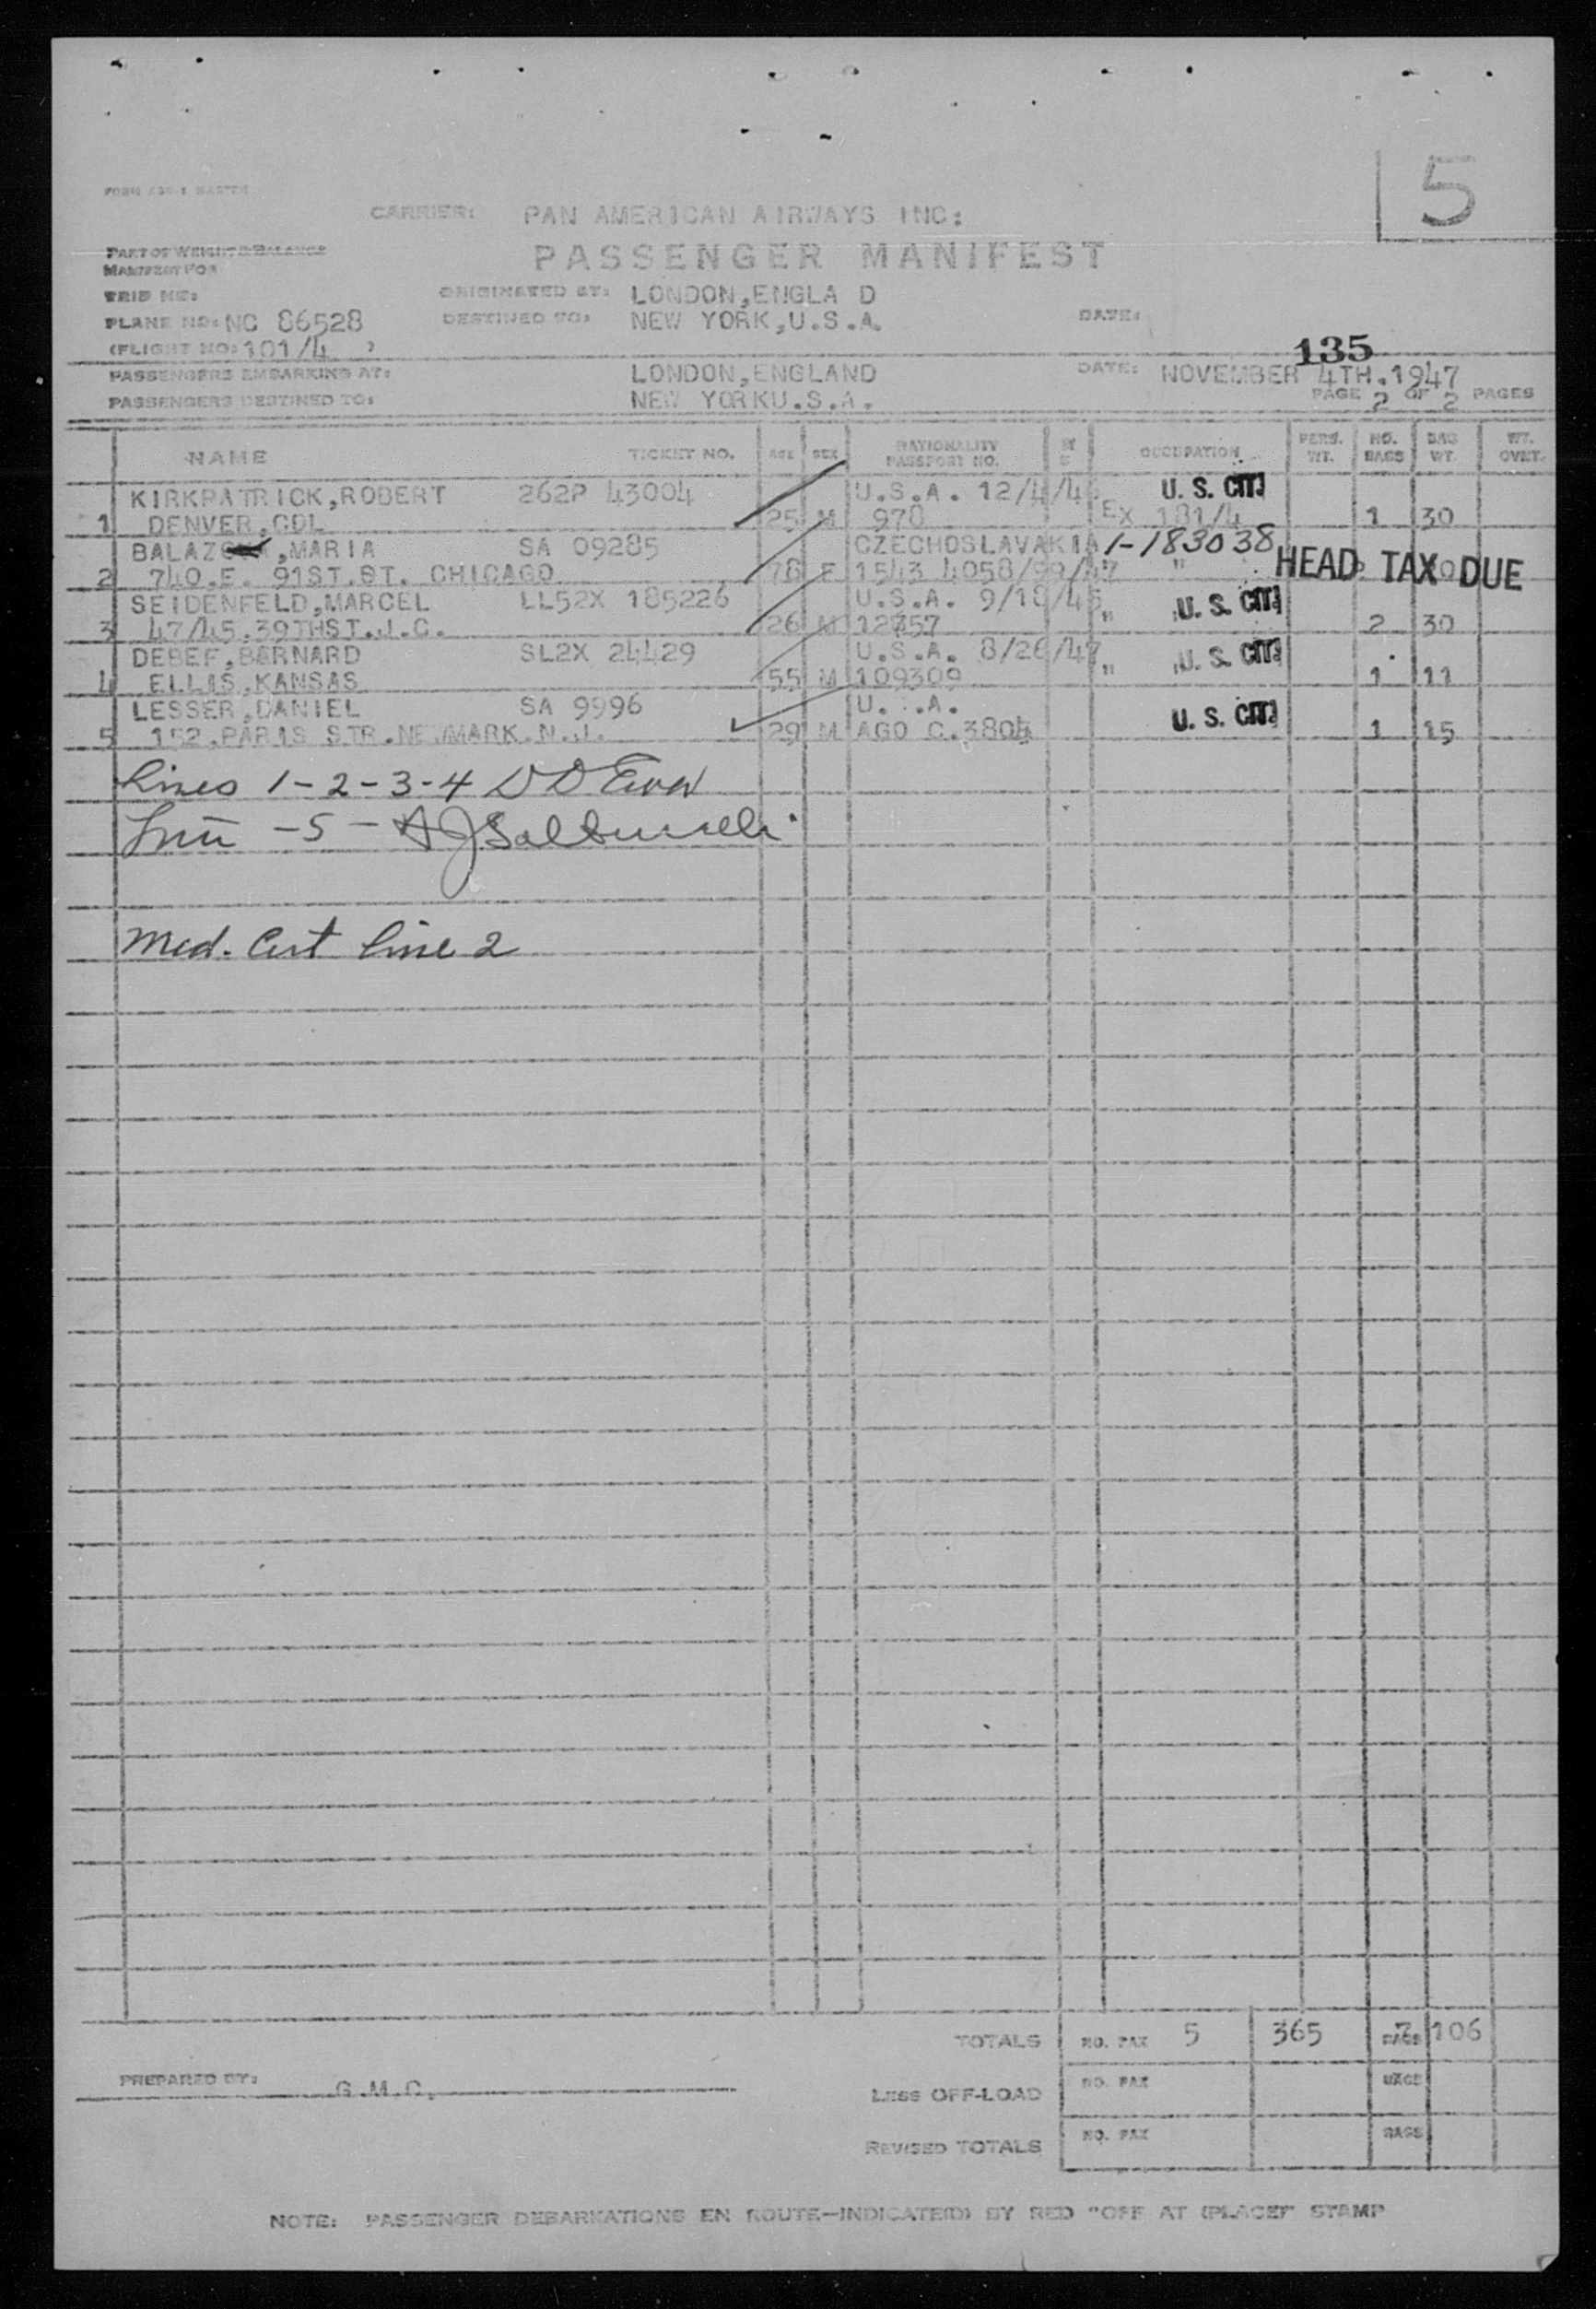 5
CARRIER: PAN AMERICAN AIRWAYS INC:
PART OF WEIGHT & BALANCE
PASSENGER MANIFEST
MANIFEST FOR
TRIP NO:
ORIGINATED AT: LONDON,ENGLA D
PLANE NO: NC 86528
DESTINED TO: NEW YORK,U.S.A.
DATE:
(FLIGHT NO: 101/4 )
135
PASSENGERS EMBARKING AT: LONDON,ENGLAND
DATE: NOVEMBER 4TH.1947
PASSENGERS DESTINED TO: NEW YORKU.S.A.
PAGE 2 OF 2 PAGES
NAME TICKET NO. AGE SEX NATIONALITY PASSPORT NO. OCCUPATION PERS. WT. NO. BAGS BAG WT. WT. OVRT.
KIRKPATRICK,ROBERT 262P 43004 U.S.A. 12/4/46 U. S. CIT.
1 DENVER,COL 25 M 978 EX 101/4 1 30
BALAZ ,MARIA SA 09285 CZECHOSLAVAKIA 1-183038
2 740.E. 91ST.ST. CHICAGO 78 F 1543 4058/99/47 " HEAD TAX DUE
SEIDENFELD,MARCEL LL52X 185226 U.S.A. 9/18/45
3 47/45.39THST.J.C. 26 M 12757 " U. S. CIT. 2 30
DEBEF,BERNARD SL2X 24429 U.S.A. 8/26/47
4 ELLIS,KANSAS 55 M 109309 " U. S. CIT. 1 11
LESSER,DANIEL SA 9996 U. .A.
5 152.PARIS STR.NEWMARK.N.J. 29 M AGO C.3804 U. S. CIT. 1 15
Lines 1-2-3-4 D D
Line -5- A J
Med. Cert Line 2
TOTALS NO. PAX 5 365 7 BAGS 106
PREPARED BY: G.M.C.
LESS OFF-LOAD NO. PAX BAGS
REVISED TOTALS NO. PAX BAGS
NOTE: PASSENGER DEBARKATIONS EN ROUTE—INDICATE(D) BY RED "OFF AT (PLACE)" STAMP